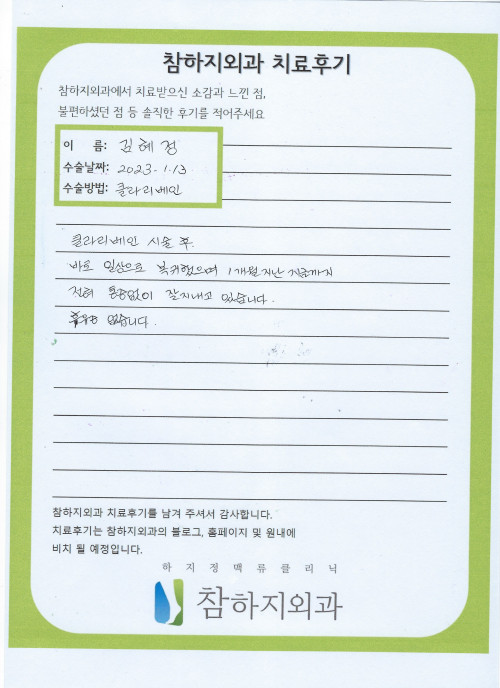 참하지외과 치료후기
참하지외과에서 치료받으신 소감과 느낀 점,
불편하셨던 점 등 솔직한 후기를 적어주세요
이 름: 김혜정
수술날짜: 2023-1.13
수술방법: 클라리베인
클라리베인 시술 후
바로 일상으로 복귀했으며 1개월 지난 지금까지
전혀 통증없이 잘지내고 있습니다.
없습니다.
참하지외과 치료후기를 남겨 주셔서 감사합니다.
치료후기는 참하지외과의 블로그, 홈페이지 및 원내에
비치 될 예정입니다.
하지정맥류클리닉
참하지외과